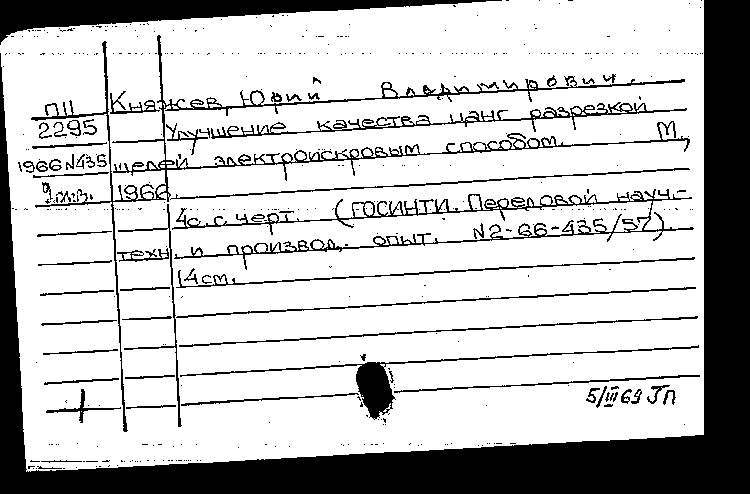 ПII Княжев, Юрий Владимирович.
2295 Улучшение качества цанг разрезкой
1966 N435 щелей электроискровым способом. М.,
1966.
4с. с черт. (ГОСИНТИ. Передовой науч.-
техн. и производ. опыт. N2-66-435/57).
14 см.
5/III 69 ГП